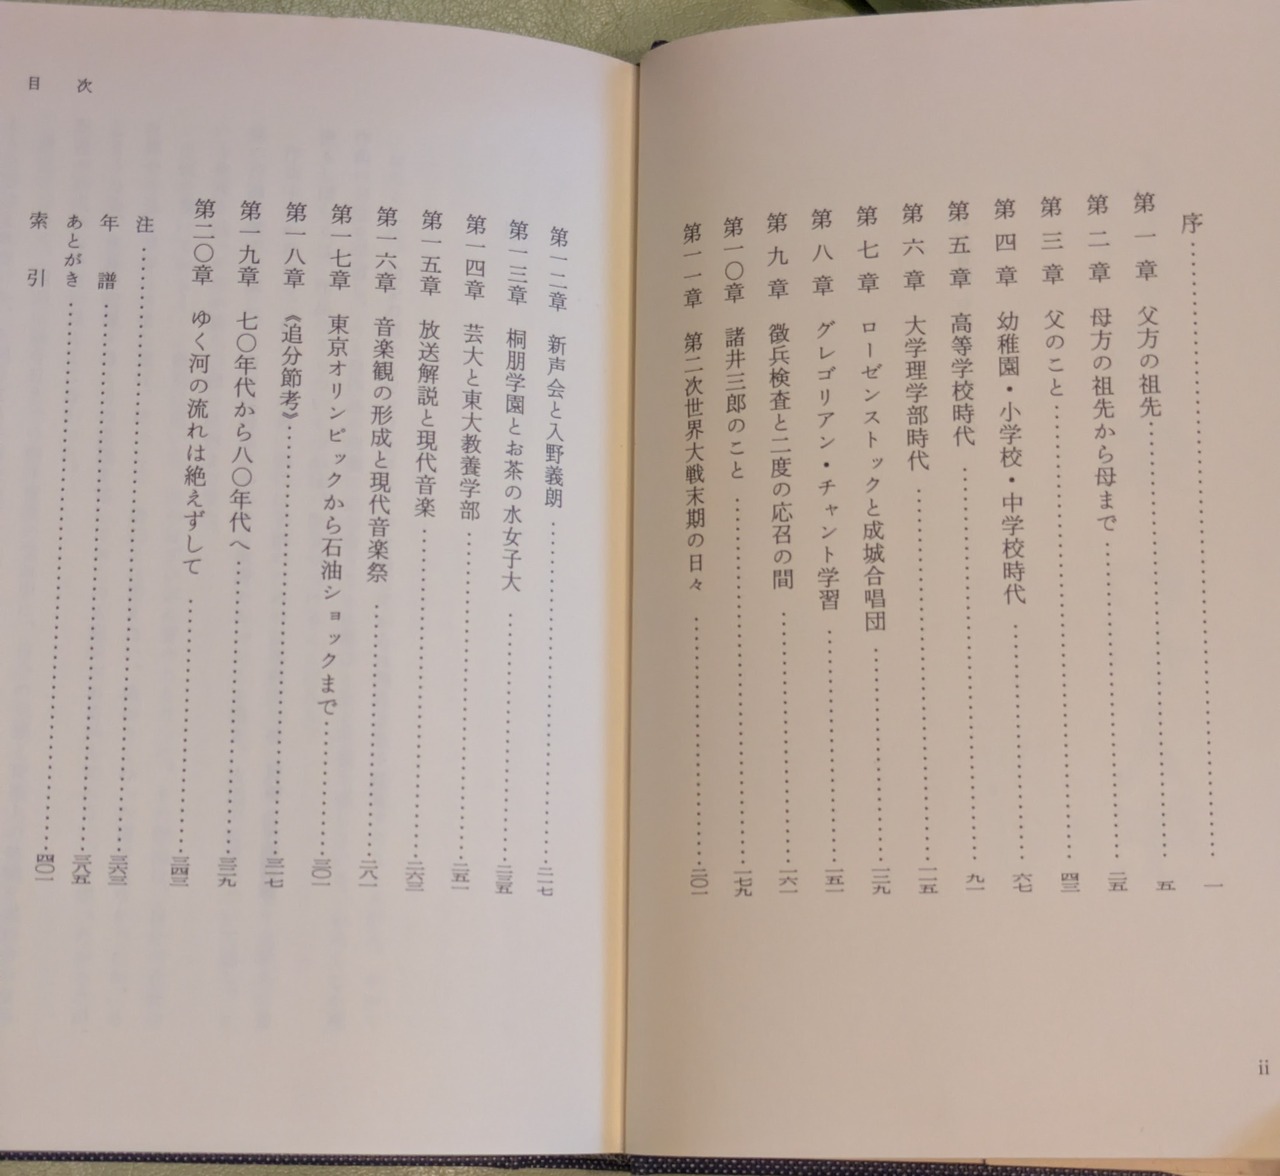 序……………一
第一章 父方の祖先……………五
第二章 母方の祖先から母まで……………二五
第三章 父のこと……………四三
第四章 幼稚園・小学校・中学校時代……………六七
第五章 高等学校時代……………九一
第六章 大学理学部時代……………一一五
第七章 ローゼンストックと成城合唱団……………一二九
第八章 グレゴリアン・チャント学習……………一五一
第九章 徴兵検査と二度の応召の間……………一六一
第一〇章 諸井三郎のこと……………一七九
第一一章 第二次世界大戦末期の日々……………二〇一
ii
目次
第一二章 新声会と入野義朗……………二一七
第一三章 桐朋学園とお茶の水女子大……………二三五
第一四章 芸大と東大教養学部……………二五一
第一五章 放送解説と現代音楽……………二六三
第一六章 音楽観の形成と現代音楽祭……………二八一
第一七章 東京オリンピックから石油ショックまで……………三〇一
第一八章 《追分節考》……………三一七
第一九章 七〇年代から八〇年代へ……………三二九
第二〇章 ゆく河の流れは絶えずして……………三四三
注……………三六三
年譜……………三八五
あとがき……………四〇一
索引